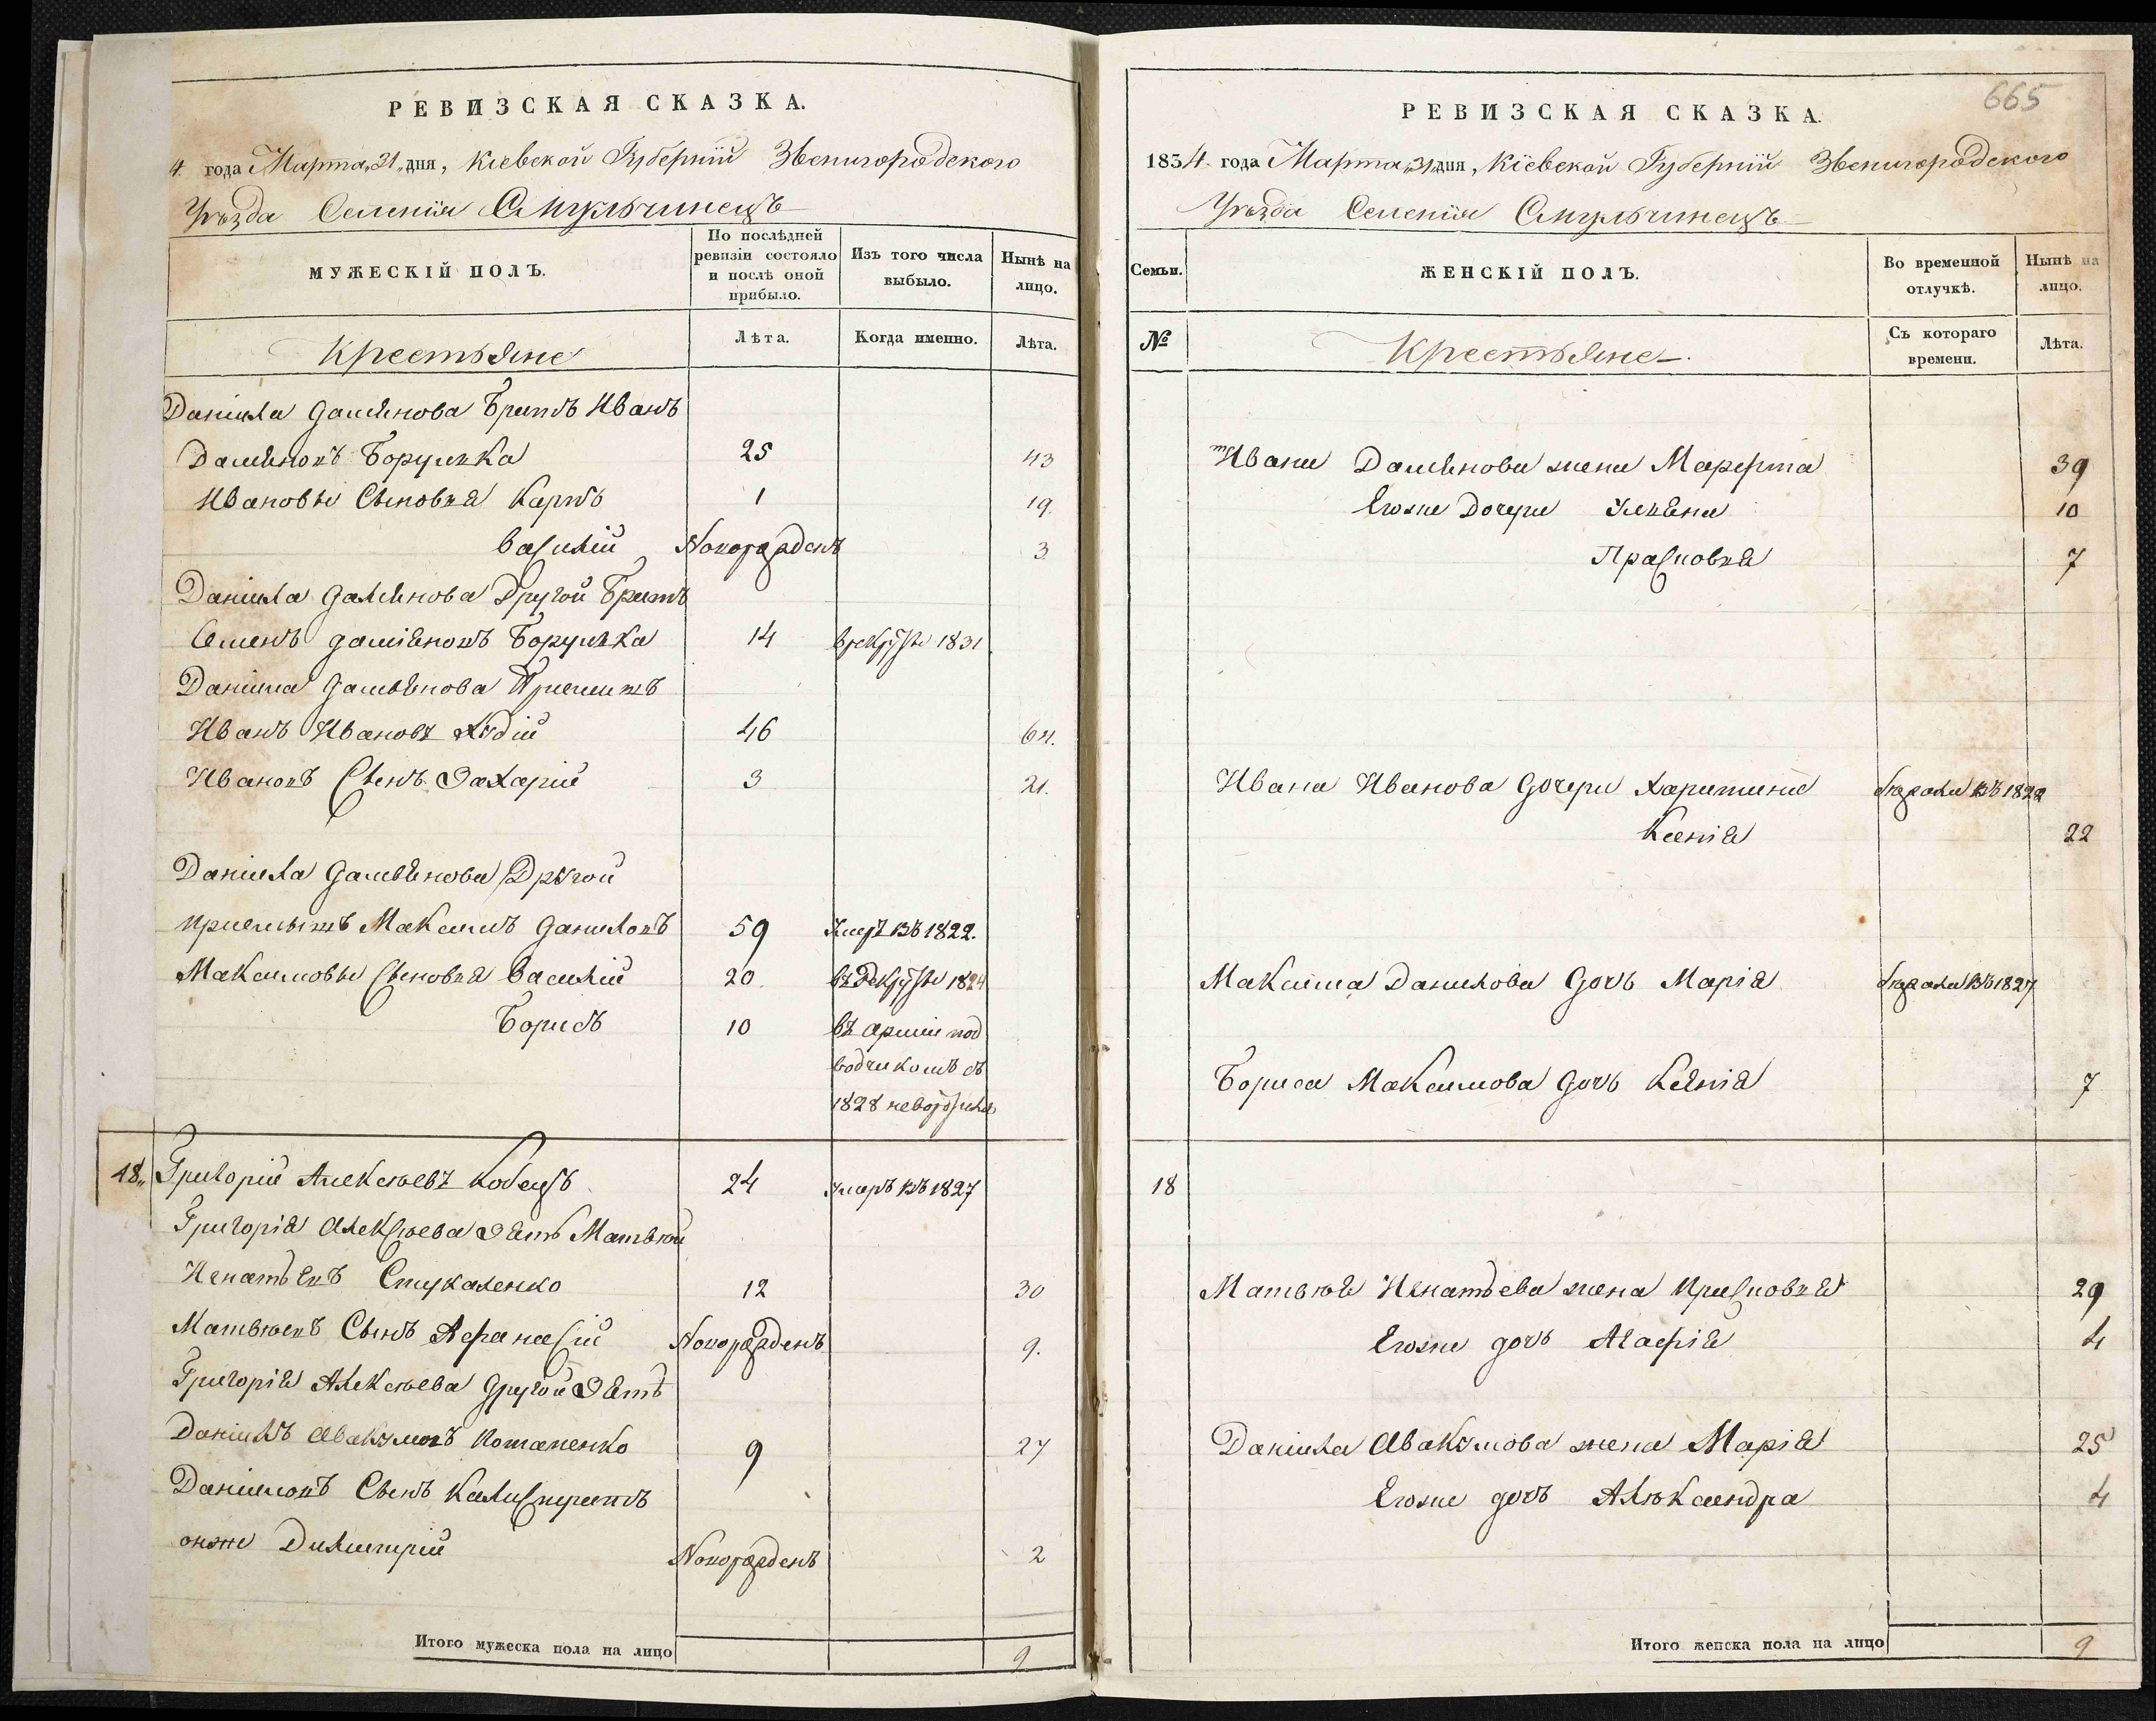 РЕВИЗСКАЯ СКАЗКА.
4. года Марта „31„ дня, Кіевской Губерніи Звенигородского
Уѣзда Селенія Смульчинецъ
МУЖЕСКІЙ ПОЛЪ.
По послѣдней ревизіи состояло и послѣ оной прибыло.
Изъ того числа выбыло.
Нынѣ на лицо.
Крестьяне
Лѣта.
Когда именно.
Лѣта.
Даніила Дамянова Братъ Иванъ
Дамяновъ 25 43
Ивановы Сыновья Карпъ 1 19.
Василій Новорожденъ 3
Даніила Дамянова Другой Братъ
Семенъ Даміяновъ 14 1831
Даніила Дамьянова Приемышъ
Иванъ Ивановъ 46 64.
Ивановъ Сынъ Захарій 3 21.
Даніила Дамьянова Другой
приемышъ Максимъ Даниловъ 59 Умеръ въ 1822.
Максимовы Сыновья Василій 20. въ рекруты 1824
Борисъ 10 въ арміи под
водчикомъ съ
1828
18„ Григорій Алексѣевъ Кобецъ 24 умеръ въ 1827
Григорія Алексѣева Зять Матвѣй
Игнатьевъ Стукаленко 12 30
Матвѣевъ Сынъ Афанасій Новорожденъ 9.
Григорія Алексѣева Другой Зять
Даніилъ Авакумовъ Потапенко 9 27
Даніиловъ Сынъ Калистратъ
онже Дилигирій Новорожденъ 2
Итого мужеска пола на лицо 9
665
РЕВИЗСКАЯ СКАЗКА.
1834. года Марта „31„ дня, Кіевской Губерніи Звенигородского
Уѣзда Селенія Смульчинецъ
Семьи.
ЖЕНСКІЙ ПОЛЪ.
Во временной отлучкѣ.
Нынѣ на лицо.
№
Крестьяне
Съ котораго времени.
Лѣта.
Ивана Дамянова жена Марфта 39
Егоже Дочери Ульяна 10
Прасковья 7
Ивана Иванова Дочери Харитина бѣжала въ 1822
Ксенія 22
Максима Данилова Дочь Марія бѣжала въ 1827
Бориса Максимова Дочь Ксенія 7
18
Матвѣя Игнатьева жена Прасковья 29
Егоже дочь Агафія 4
Даніила Авакумова жена Марія 25
Егоже дочъ Алѣксандра 4
Итого женска пола на лицо 9